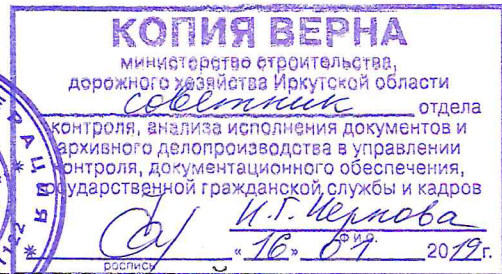 КОПИЯ ВЕРНА
министерство строительства,
дорожного хозяйства Иркутской области
советник отдела
контроля, анализа исполнения документов и
архивного делопроизводства в управлении
контроля, документационного обеспечения,
государственной гражданской службы и кадров
И.Г. Чернова
роспись Ф.И.О.
"16" 01 2019г.